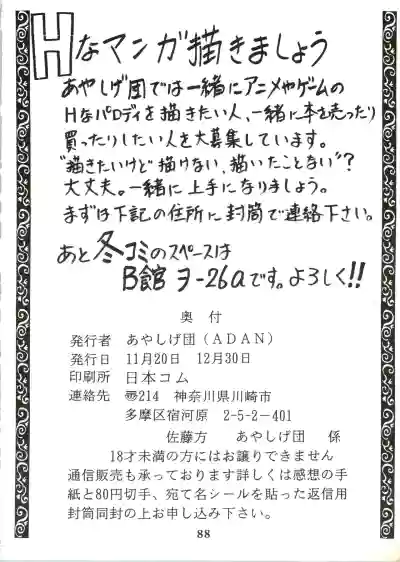 Hなマンガ描きましょう
あやしげ団では一緒にアニメやゲームの
Hなパロディを描きたい人、一緒に本を売ったり
買ったりしたい人を大募集しています。
"描きたいけど描けない、描いたことない"?
大丈夫。一緒に上手になりましょう。
まずは下記の住所に封筒で連絡下さい。
あと冬コミのスペースは
B館 ヲ-26aです。よろしく!!
奥 付
発行者 あやしげ団(ADAN)
発行日 11月20日 12月30日
印刷所 日本コム
連絡先 〠214 神奈川県川崎市
多摩区宿河原 2-5-2-401
佐藤方 あやしげ団 係
18才未満の方にはお譲りできません
通信販売も承っております詳しくは感想の手
紙と80円切手、宛て名シールを貼った返信用
封筒同封の上お申し込み下さい。
88